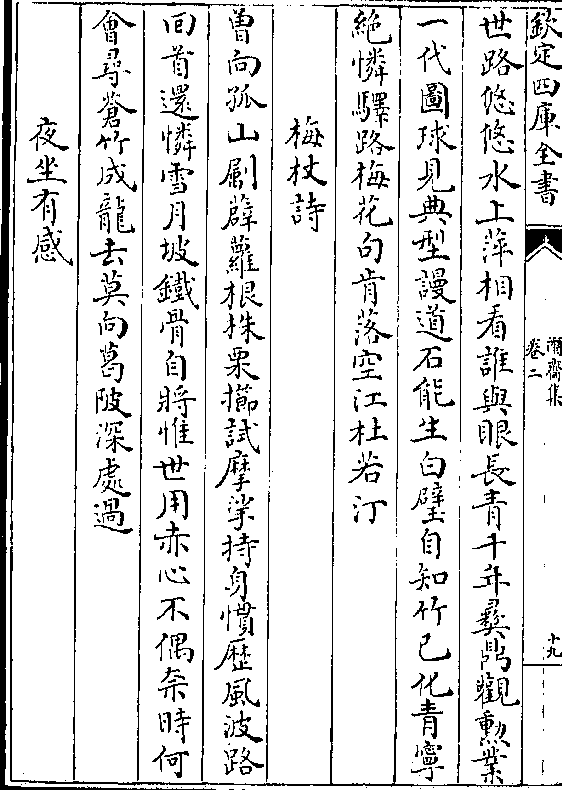 欽定四庫全書
卷二
十九
世路悠悠水上萍相看誰與眼長青千年彛鼎觀勲業
一代圖球見典型謾道石能生白璧自知竹已化青寧
絶憐驛路梅花句肯落空江杜若汀
梅杖詩
曾向孤山劚薜蘿根株栗㮨試摩挲持身慣歴風波路
回首還憐雪月坡鐵骨自將惟世用赤心不偶柰時何
會尋蒼竹成龍去莫向葛陂深處過
夜坐有感